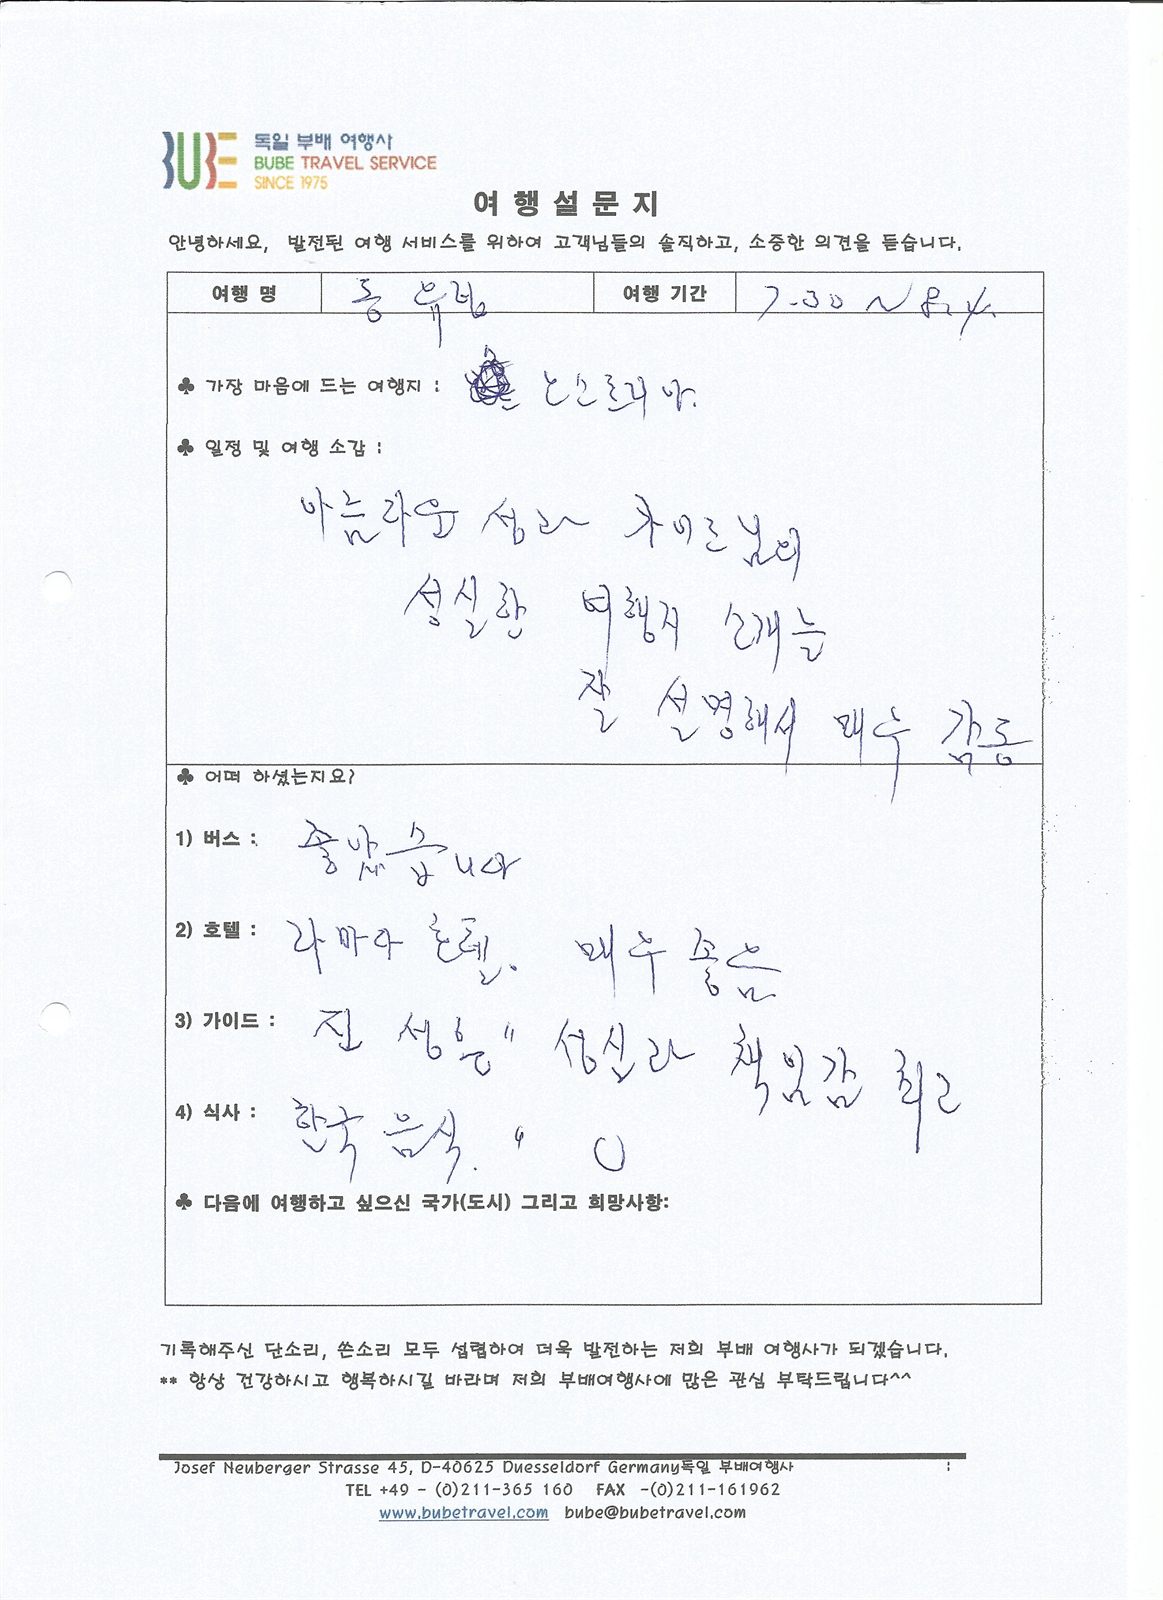 BUBE
독일 부배 여행사
BUBE TRAVEL SERVICE
SINCE 1975
여 행 설 문 지
안녕하세요, 발전된 여행 서비스를 위하여 고객님들의 솔직하고, 소중한 의견을 듣습니다.
여행 명 동유럽 여행 기간 7.30 ~ 8.4.
♣ 가장 마음에 드는 여행지 : 오스트리아.
♣ 일정 및 여행 소감 :
아름다운 성과 가이드님의
성실한 여행지 소개는
잘 설명해서 매우 감동
♣ 어떠 하셨는지요?
1) 버스 : 좋았습니다
2) 호텔 : 라마다 호텔. 매우 좋음
3) 가이드 : 진 성은" 성실과 책임감 최고
4) 식사 : 한국 음식. "
♣ 다음에 여행하고 싶으신 국가(도시) 그리고 희망사항:
기록해주신 단소리, 쓴소리 모두 섭렵하여 더욱 발전하는 저희 부배 여행사가 되겠습니다.
** 항상 건강하시고 행복하시길 바라며 저희 부배여행사에 많은 관심 부탁드립니다^^
Josef Neuberger Strasse 45, D-40625 Duesseldorf Germany독일 부배여행사 :
TEL +49 - (0)211-365 160 FAX -(0)211-161962
www.bubetravel.com bube@bubetravel.com